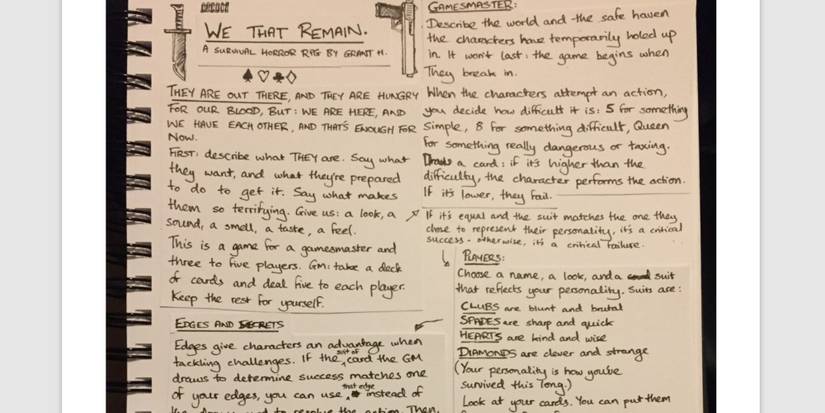 WE THAT REMAIN.
A SURVIVAL HORROR RPG BY GRANT H.
THEY ARE OUT THERE, AND THEY ARE HUNGRY
FOR OUR BLOOD, BUT: WE ARE HERE, AND
WE HAVE EACH OTHER, AND THAT'S ENOUGH FOR
NOW.
FIRST: describe what THEY are. Say what
they want, and what they're prepared
to do to get it. Say what makes
them so terrifying. Give us: a look, a
sound, a smell, a taste, a feel.
This is a game for a gamesmaster and
three to five players. GM: take a deck
of cards and deal five to each player.
Keep the rest for yourself.
EDGES AND SECRETS
Edges give characters an advantage when
tackling challenges. If the suit of card the GM
draws to determine success matches one
of your edges, you can use that edge instead of
the to resolve the action. Then,
GAMESMASTER:
Describe the world and the safe haven
the characters have temporarily holed up
in. It won't last: the game begins when
They break in.
When the characters attempt an action,
you decide how difficult it is: 5 for something
simple, 8 for something difficult, Queen
for something really dangerous or taxing.
Draw a card: if it's higher than the
difficulty, the character performs the action.
If it's lower, they fail.
If it's equal and the suit matches the one they
chose to represent their personality, it's a critical
success - otherwise, it's a critical failure.
PLAYERS:
Choose a name, a look, and a suit
that reflects your personality. Suits are:
CLUBS are blunt and brutal
SPADES are sharp and quick
HEARTS are kind and wise
DIAMONDS are clever and strange
(Your personality is how you've
survived this long.)
Look at your cards. You can put them